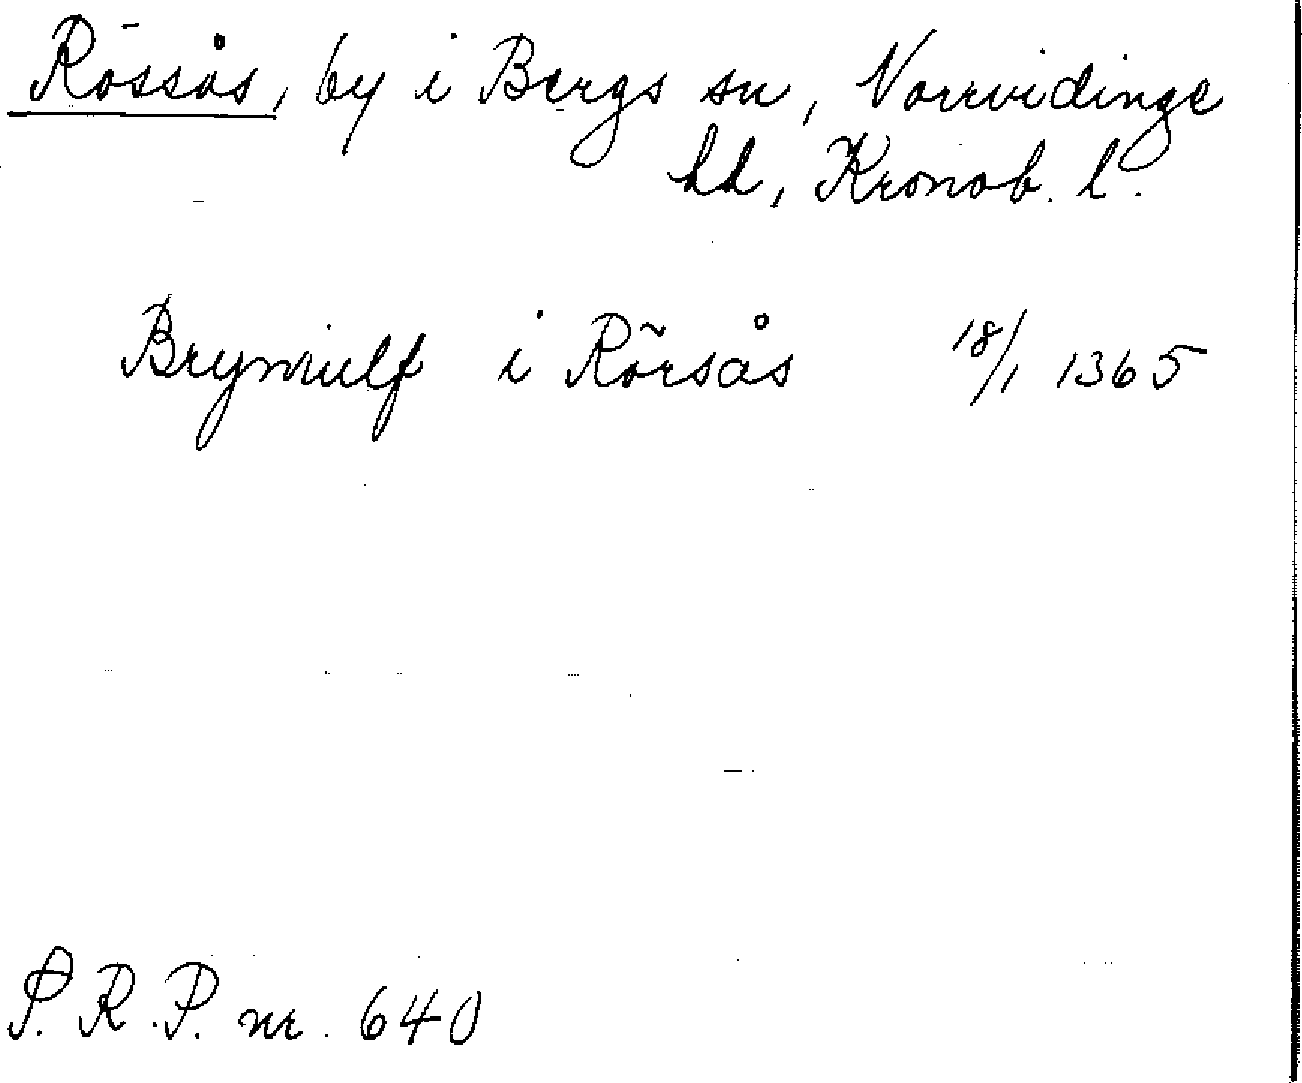 Rössås, by i Bergs sn, Norrvidinge
hd, Kronob. l.
Bryniulf i Rörsås 18/1 1365
P. R. P. nr. 640